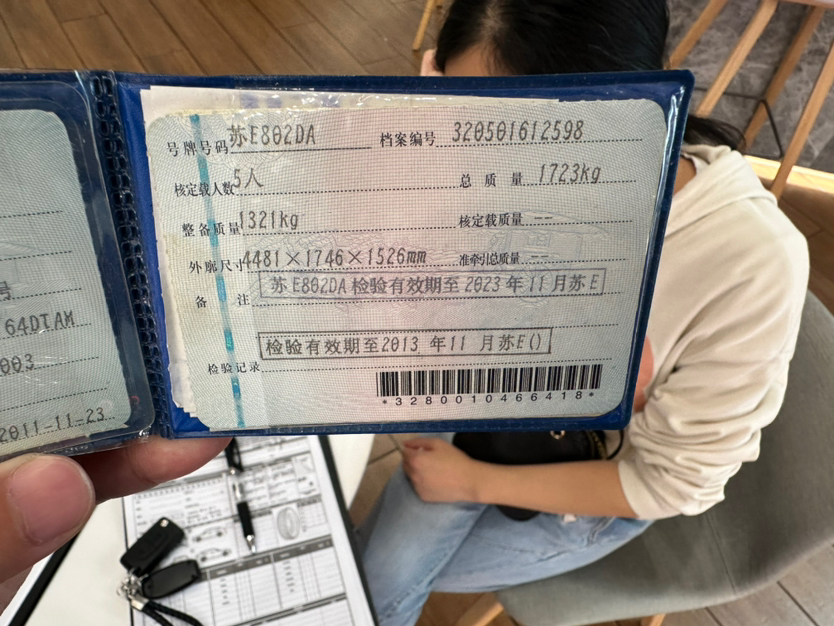 号牌号码 苏E802DA 档案编号 320501612598
核定载人数 5人 总质量 1723kg
整备质量 1321kg 核定载质量 --
外廓尺寸 4481×1746×1526mm 准牵引总质量 --
备注 苏E802DA 检验有效期至2023年11月苏E
检验有效期至2013年11月苏E()
检验记录
*3280010466418*
号
64DTAM
003
2011-11-23